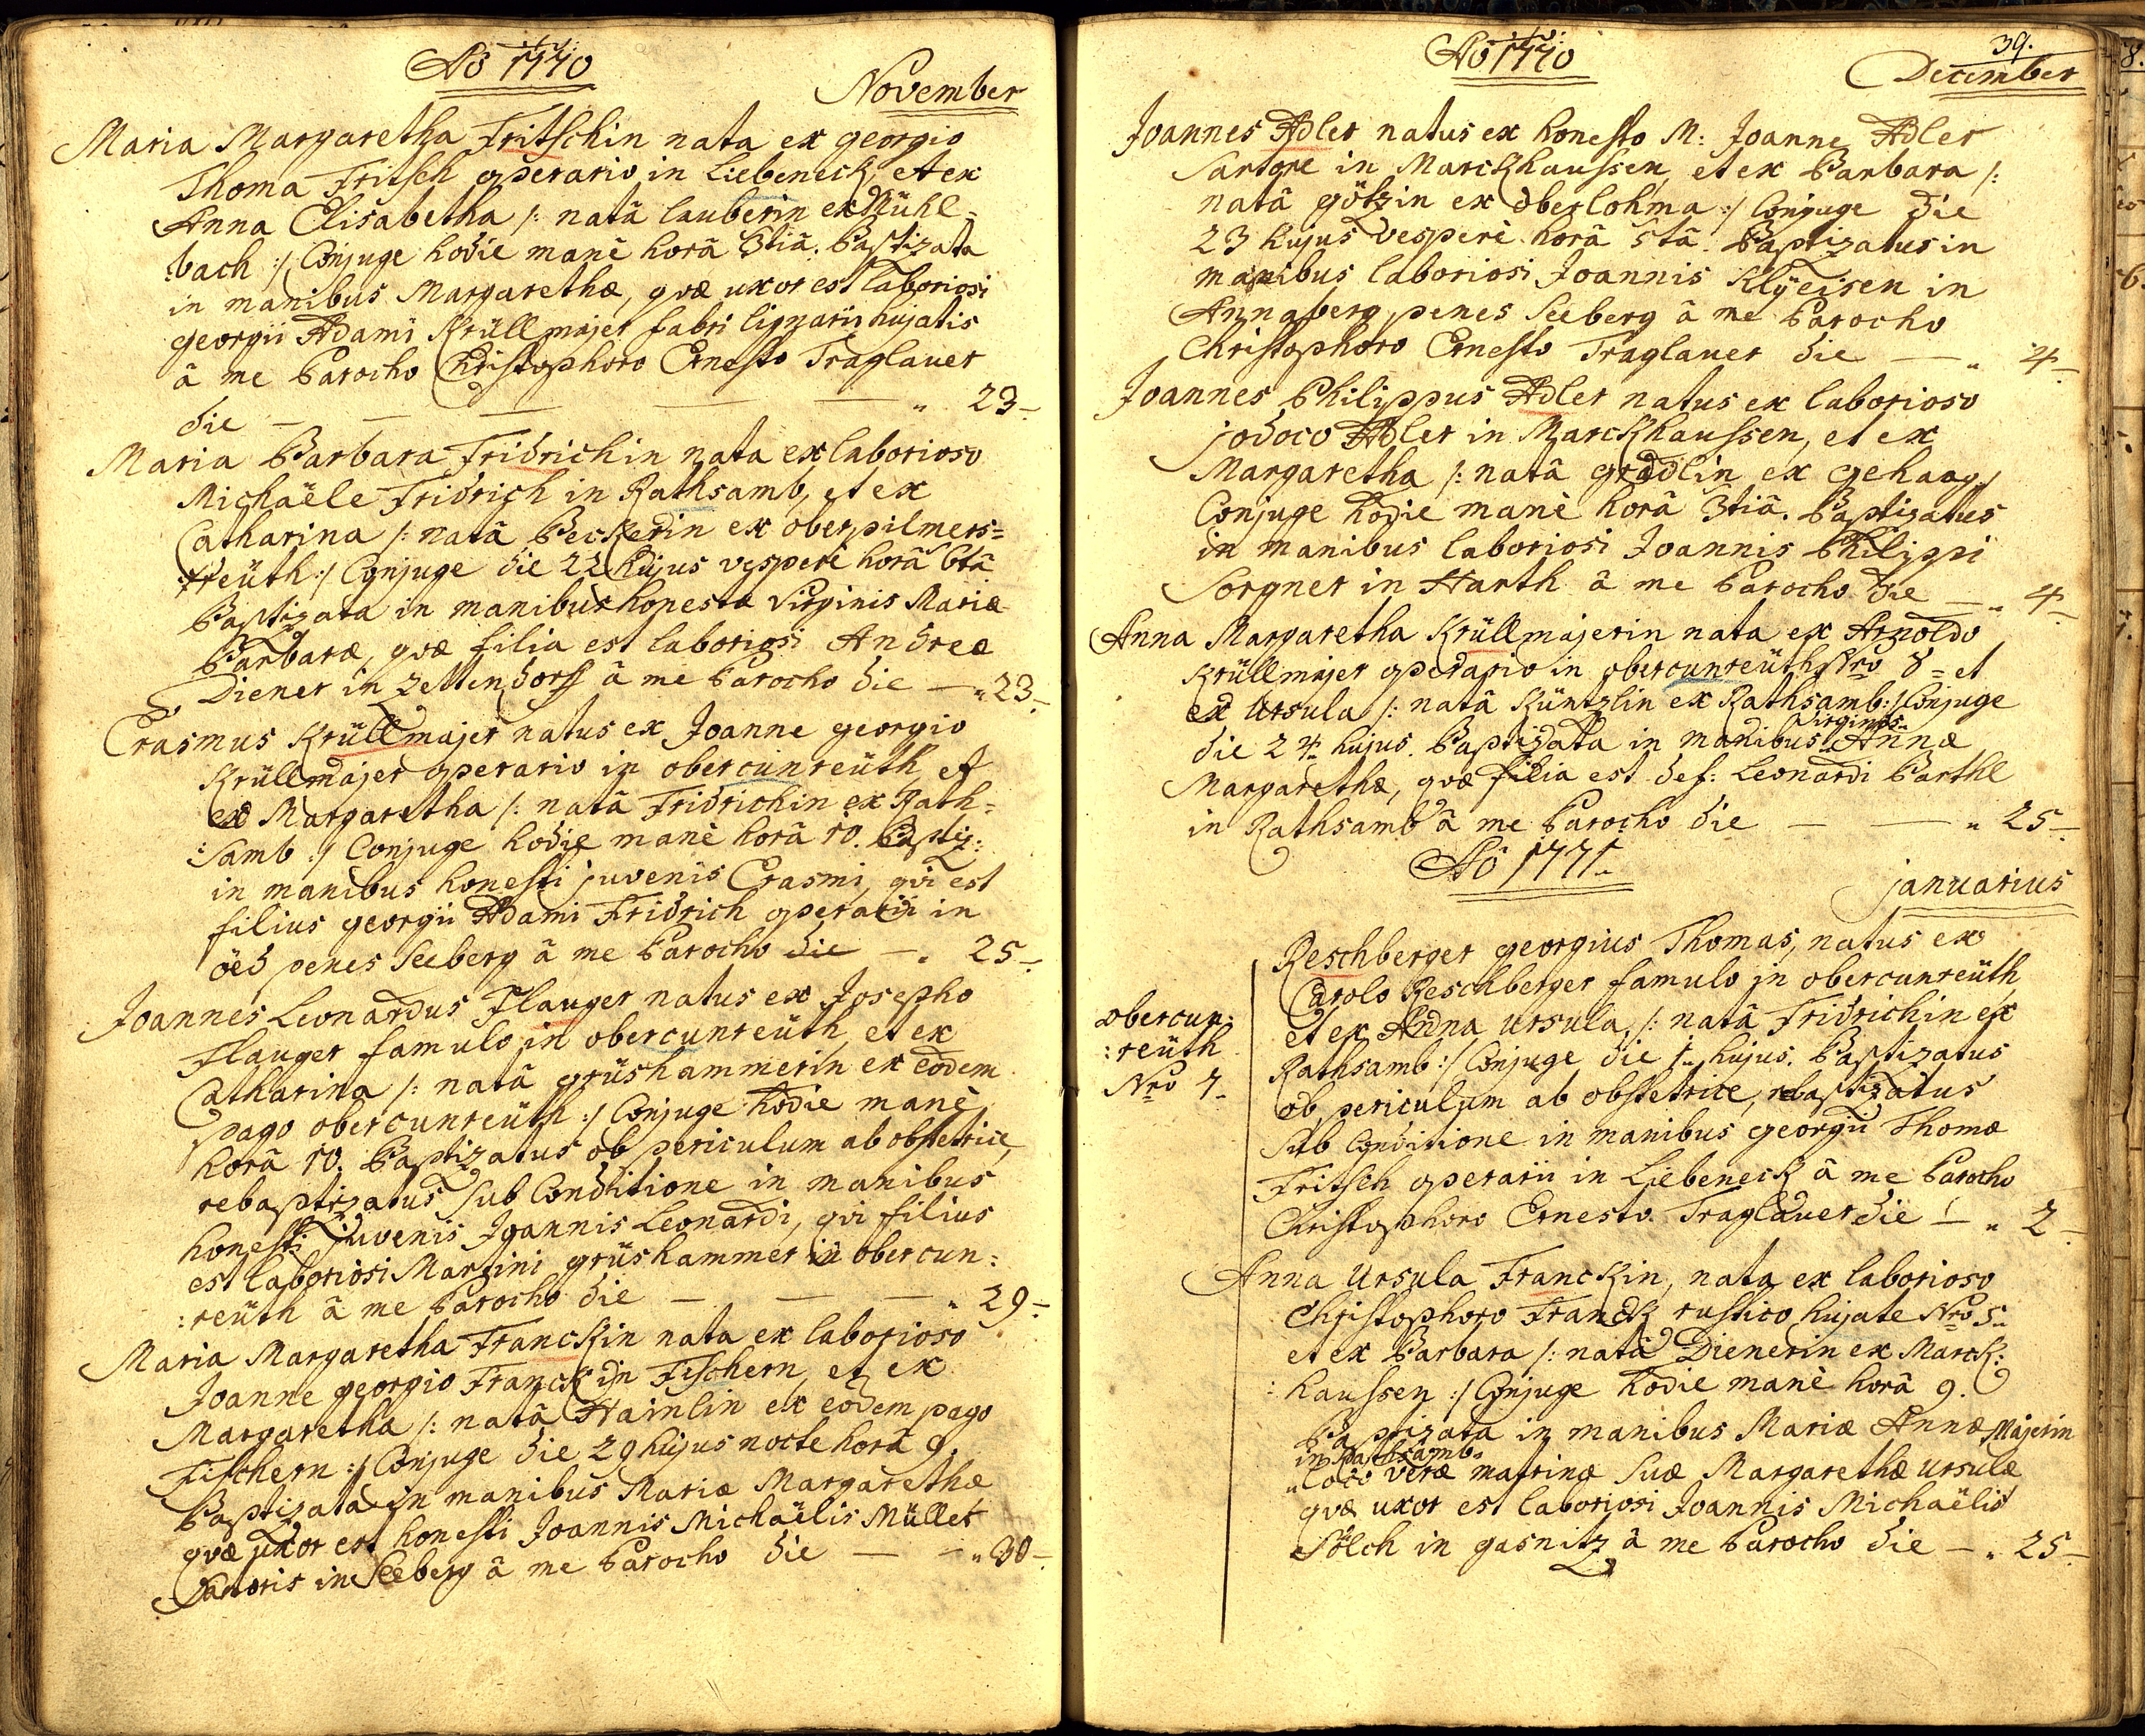 Aö 1770
November
Maria Margaretha Fritschin nata ex georgio
Thoma Fritsch operario in Liebeneck, et ex
Anna Elisabetha /: natâ lauberin ex Mühl=
bach :/ Conjuge hodie manè horâ 3tiâ. Baptizata
in manibus Margarethæ, qvæ uxor est laboriosi
georgii Adami Krüllmajer fabri lignarii hujatis
â me Parocho Christophoro Ernesto Traglauer
die — — — — " 23.
Maria Barbara Fridrichin nata ex laborioso
Michaële Fridrich in Rathsamb, et ex
Catharina /: natâ Beckerin ex oberpilmers=
reüth :/ Conjuge die 22 hujus vesperè horâ 6tâ
Baptizata in manibus honestæ Virginis Mariæ
Barbaræ, qvæ filia est laboriosi Andreæ
Diener in Zettendorff â me Parocho die — " 23.
Erasmus Krüllmajer natus ex Joanne georgio
Krüllmajer operario in obercunreüth, et
ex Margaretha /: natâ Fridrichin ex Rath=
:samb :/ Conjuge hodie manè horâ 10. Baptiz:
in manibus honesti juvenis Erasmi, qvi est
filius georgii Adami Fridrich operarii in
öed penes Seeberg â me Parocho die — " 25.
Joannes Leonardus Flauger natus ex Josepho
Flauger famulo in obercunreüth, et ex
Catharina /: natâ grüshammerin ex eodem
pago obercunreüth :/ Conjuge hodie manè
horâ 10. Baptizatus ob periculum ab obstetrice,
rebaptizatus sub Conditione in manibus
honesti juvenis Joannis Leonardi, qvi filius
est laboriosi Martini grüshammer in obercun:
:reüth â me Parocho die — — — " 29.
Maria Margaretha Franckin nata ex laborioso
Joanne georgio Franck in Fischern, et ex
Margaretha /: natâ Hainlin ex eodem pago
Fischern :/ Conjuge die 29 hujus nocte horâ 9.
Baptizata in manibus Mariæ Margarethæ
qvæ uxor est honesti Joannis Michaëlis Müller
Sartoris in Seeberg â me Parocho die — — " 30.
Aö 1770
39.
December
Joannes Adler natus ex honesto M: Joanne Adler
Sartore in Marckhaussen, et ex Barbara /:
natâ götzin ex oberlohma :/ Conjuge die
23 hujus vesperè horâ 5tâ. Baptizatus in
manibus laboriosi Joannis Klÿeisen in
Annaberg penes Seeberg â me Parocho
Christophoro Ernesto Traglauer die — " 4.
Joannes Philippus Adler natus ex laborioso
jodoco Adler in Marckhaussen, et ex
Margaretha /: natâ gradlin ex gehaag :/
Conjuge hodie manè horâ 3tiâ. Baptizatus
in manibus laboriosi Joannis Philippi
Sorgner in Harth â me Parocho die — " 4.
Anna Margaretha Krüllmajerin nata ex Arnoldo
Krüllmajer operario in obercunreüth Nro 8 = et
ex Ursula /: natâ Küntzlin ex Rathsamb :/ Conjuge
die 24 hujus. Baptizata in manibus Virginis Annæ
Margarethæ, qvæ filia est def: Leonardi Barthl
in Rathsamb â me Parocho die — — " 25.
Aö 1771.
januarius
obercun:
:reüth
Nro 7.
Reschberger georgius Thomas, natus ex
Carolo Reschberger famulo in obercunreüth
et ex Anna Ursula /: natâ Fridrichin ex
Rathsamb :/ Conjuge die 1. hujus. Baptizatus
ob periculum ab obstetrice, rebaptizatus
sub Conditione in manibus georgii Thomæ
Fritsch operarii in Liebeneck â me Parocho
Christophoro Ernesto Traglauer die — " 2.
Anna Ursula Franckin, nata ex laborioso
Christophoro Franck rustico hujate Nro 5.
et ex Barbara /: natâ Dienerin ex Marck:
:haussen :/ Conjuge hodie manè horâ 9.
Baptizata in manibus Mariæ Annæ Majerin
in Rathsamb
loco veræ matrinæ suæ Margarethæ Ursulæ
qvæ uxor est laboriosi Joannis Michaëlis
Sölch in gasnitz â me Parocho die — " 25.